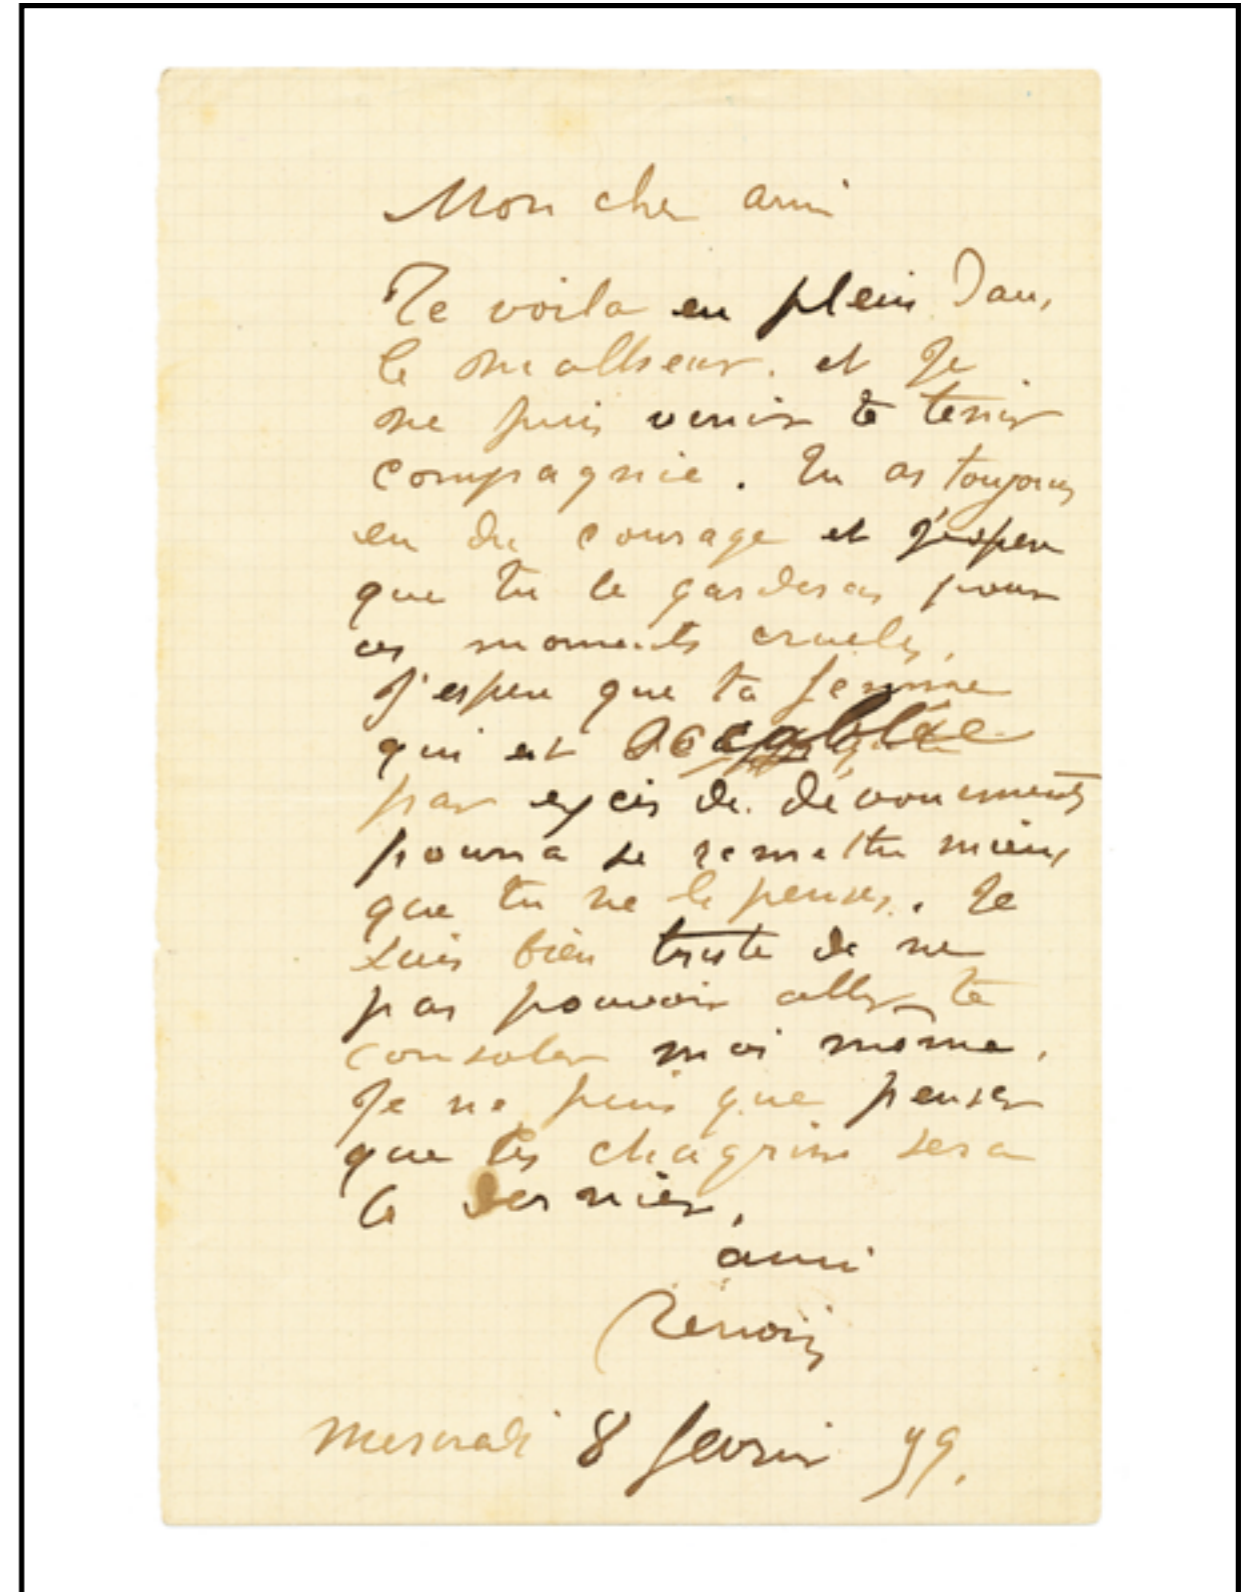 Mon cher ami
Te voila en plein dans
le malheur. et je
ne puis venir te tenir
compagnie. Tu as toujours
eu du courage et j'espere
que tu le garderas pour
ces moments cruels.
J'espere que ta femme
qui est accablée
par excès de dévouements
pourra se remettre mieux
que tu ne le penses. Je
suis bien triste de ne
pas pouvoir aller te
consoler moi même.
Je ne puis que penser
que tes chagrins sera
le dernier.
ami
Renoir
Mercredi 8 fevrier 99.